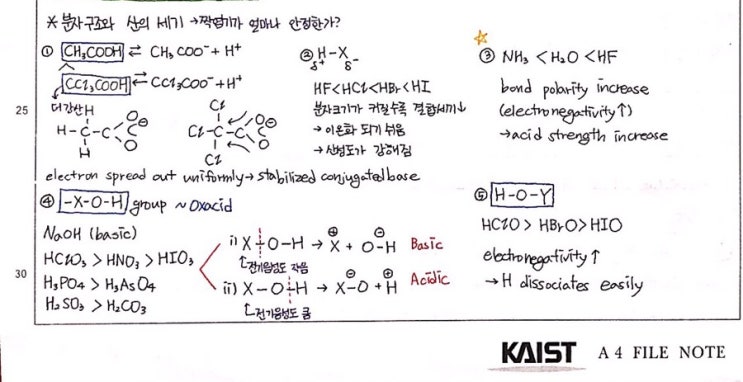 * 분자구조와 산의 세기 → 짝염기가 얼마나 안정한가?
① CH₃COOH ⇄ CH₃COO⁻ + H⁺
CCl₃COOH ⇄ CCl₃COO⁻ + H⁺
더 강산
H
H-C-C
H
O
O
⊖
Cl
Cl-C-C
Cl
O
O
⊖
electron spread out uniformly → stabilized conjugated base
② H-X
δ+ δ-
HF<HCl<HBr<HI
분자크기가 커질수록 결합세기↓
→ 이온화 되기 쉬움
→ 산성도가 강해짐
③ NH₃ < H₂O < HF
bond polarity increase
(electronegativity↑)
→ acid strength increase
25
④ -X-O-H group ~ Oxacid
NaOH (basic)
HClO₃ > HNO₃ > HIO₃
H₃PO₄ > H₃AsO₄
H₂SO₃ > H₂CO₃
i) X-O-H → X⊕ + O⊖-H Basic
전기음성도 작음
ii) X-O-H → X-O⊖ + H⊕ Acidic
전기음성도 큼
⑤ H-O-Y
HClO > HBrO > HIO
electronegativity ↑
→ H dissociates easily
30
KAIST A 4 FILE NOTE